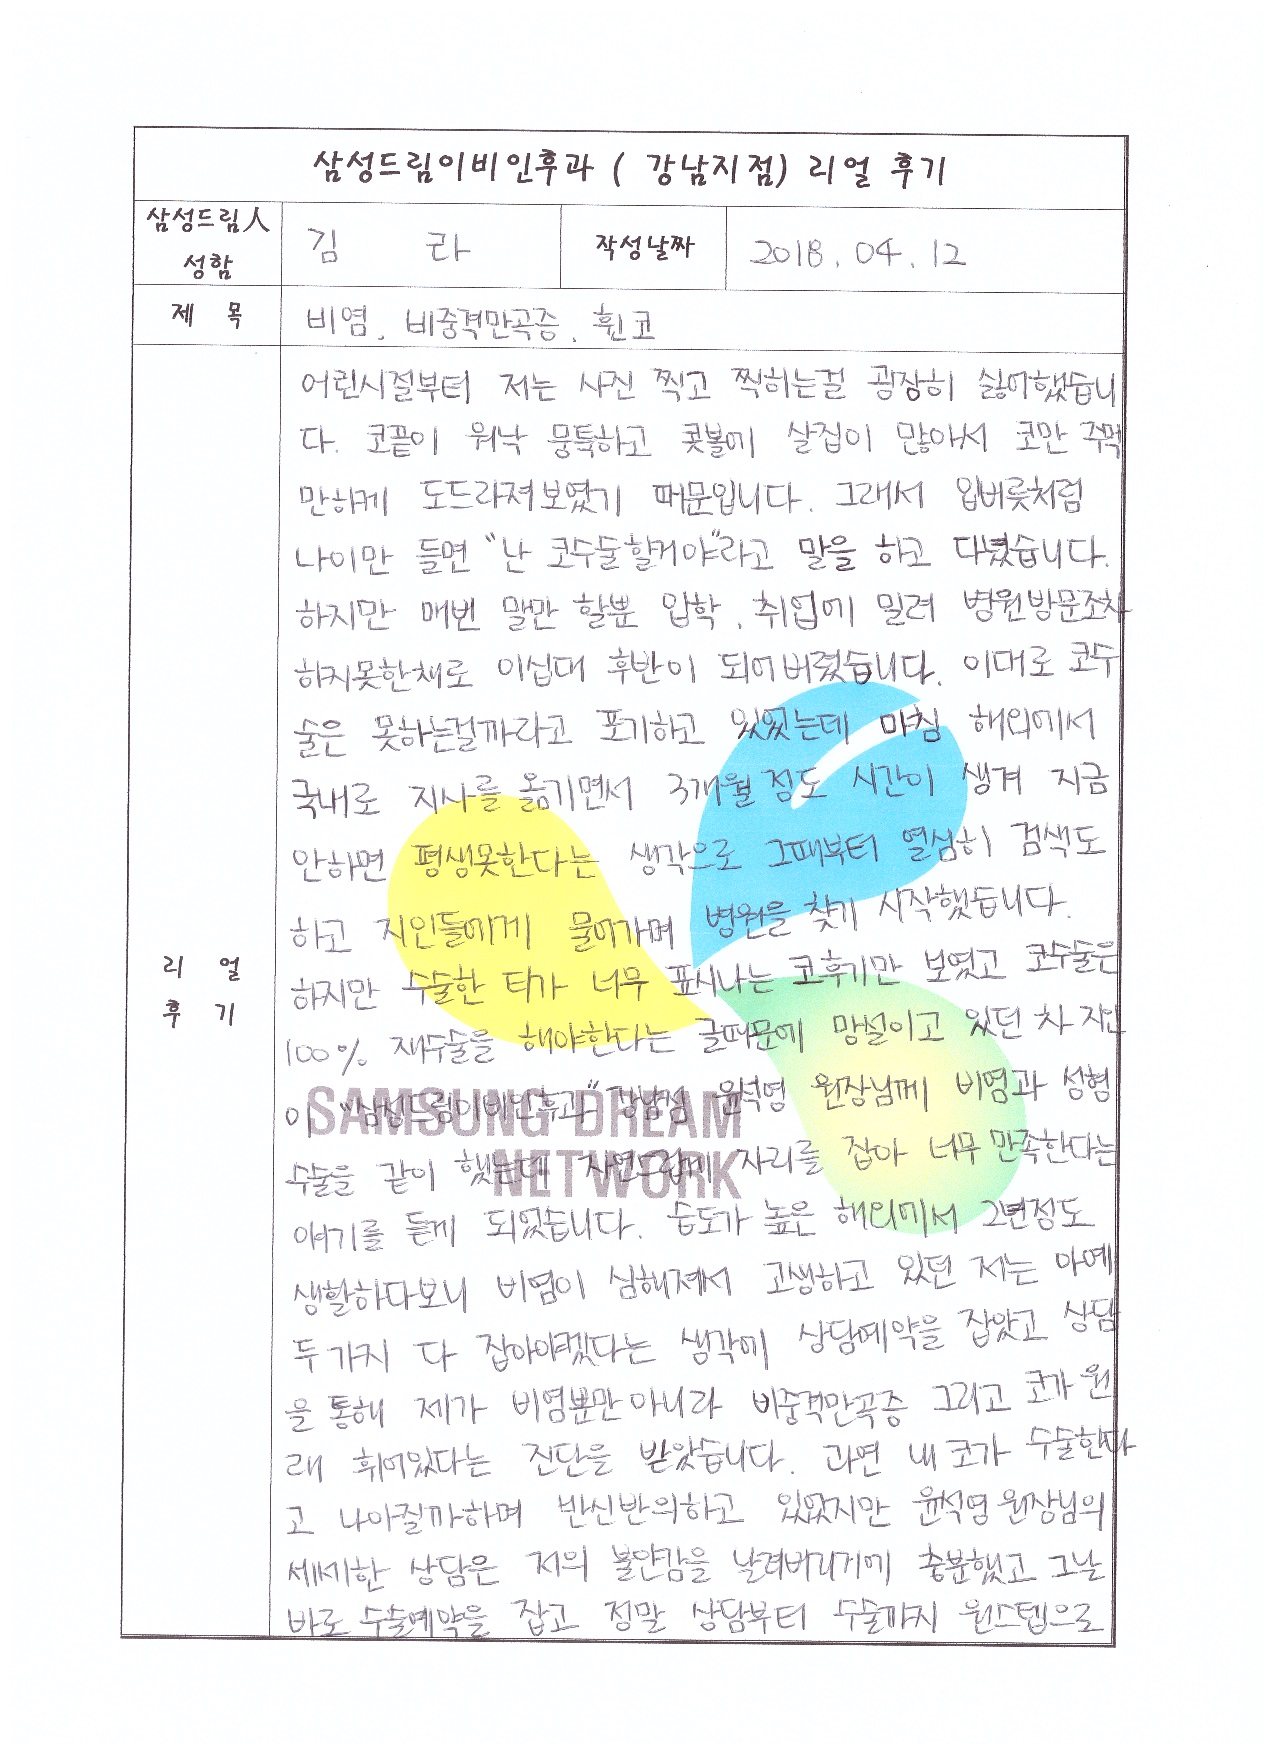 삼성드림이비인후과 ( 강남지점) 리얼 후기
삼성드림人 성함
김 라
작성날짜
2018. 04. 12
제 목
비염, 비중격만곡증, 휜코
리 얼
후 기
어린시절부터 저는 사진 찍고 찍히는걸 굉장히 싫어했습니
다. 코끝이 워낙 뭉특하고 콧볼에 살집이 많아서 코만 주먹
만하게 도드라져보였기 때문입니다. 그래서 입버릇처럼
나이만 들면 "난 코수술할거야"라고 말을 하고 다녔습니다.
하지만 매번 말만 할뿐 입학, 취업에 밀려 병원방문조차
하지못한채로 이십대 후반이 되어버렸습니다. 이대로 코수
술은 못하는걸까라고 포기하고 있었는데 마침 해외에서
국내로 지사를 옮기면서 3개월정도 시간이 생겨 지금
안하면 평생못한다는 생각으로 그때부터 열심히 검색도
하고 지인들에게 물어가며 병원을 찾기 시작했습니다.
하지만 수술한 티가 너무 표시나는 코후기만 보였고 코수술은
100% 재수술을 해야한다는 글때문에 망설이고 있던 차 지인
이 "삼성드림이비인후과" 강남점 윤석영 원장님께 비염과 성형
수술을 같이 했는데 자연스럽게 자리를 잡아 너무 만족한다는
얘기를 듣게 되었습니다. 습도가 높은 해외에서 2년정도
생활하다보니 비염이 심해져서 고생하고 있던 저는 아예
두가지 다 잡아야겠다는 생각에 상담예약을 잡았고 상담
을 통해 제가 비염뿐만아니라 비중격만곡증 그리고 코가 원
래 휘어있다는 진단을 받았습니다. 과연 내 코가 수술한다
고 나아질까하며 반신반의하고 있었지만 윤석영 원장님의
세세한 상담은 저의 불안감을 날려버리기에 충분했고 그날
바로 수술예약을 잡고 정말 상담부터 수술까지 원스텝으로
SAMSUNG DREAM
NETWORK